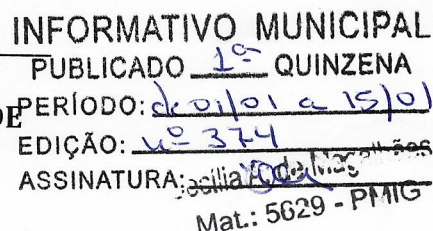 INFORMATIVO MUNICIPAL
PUBLICADO 1ª QUINZENA
DE PERÍODO: de 01/01 a 15/01
EDIÇÃO: nº 374
ASSINATURA: Cecilia de Magalhães
Mat.: 5629 - PMIG